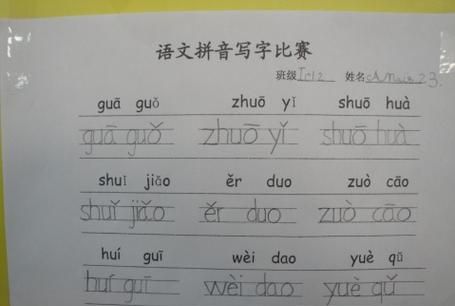 语文拼音写字比赛
班级 1r12 姓名 Amain 23.
guā guǒ zhuō yǐ shuō huà
guā guǒ zhuō yǐ shuō huà
shuǐ jiǎo ěr duo zuò cāo
shuǐ jiǎo ěr duo zuò cāo
huí guī wèi dao yuè qǔ
huí guī wèi dao yuè qǔ